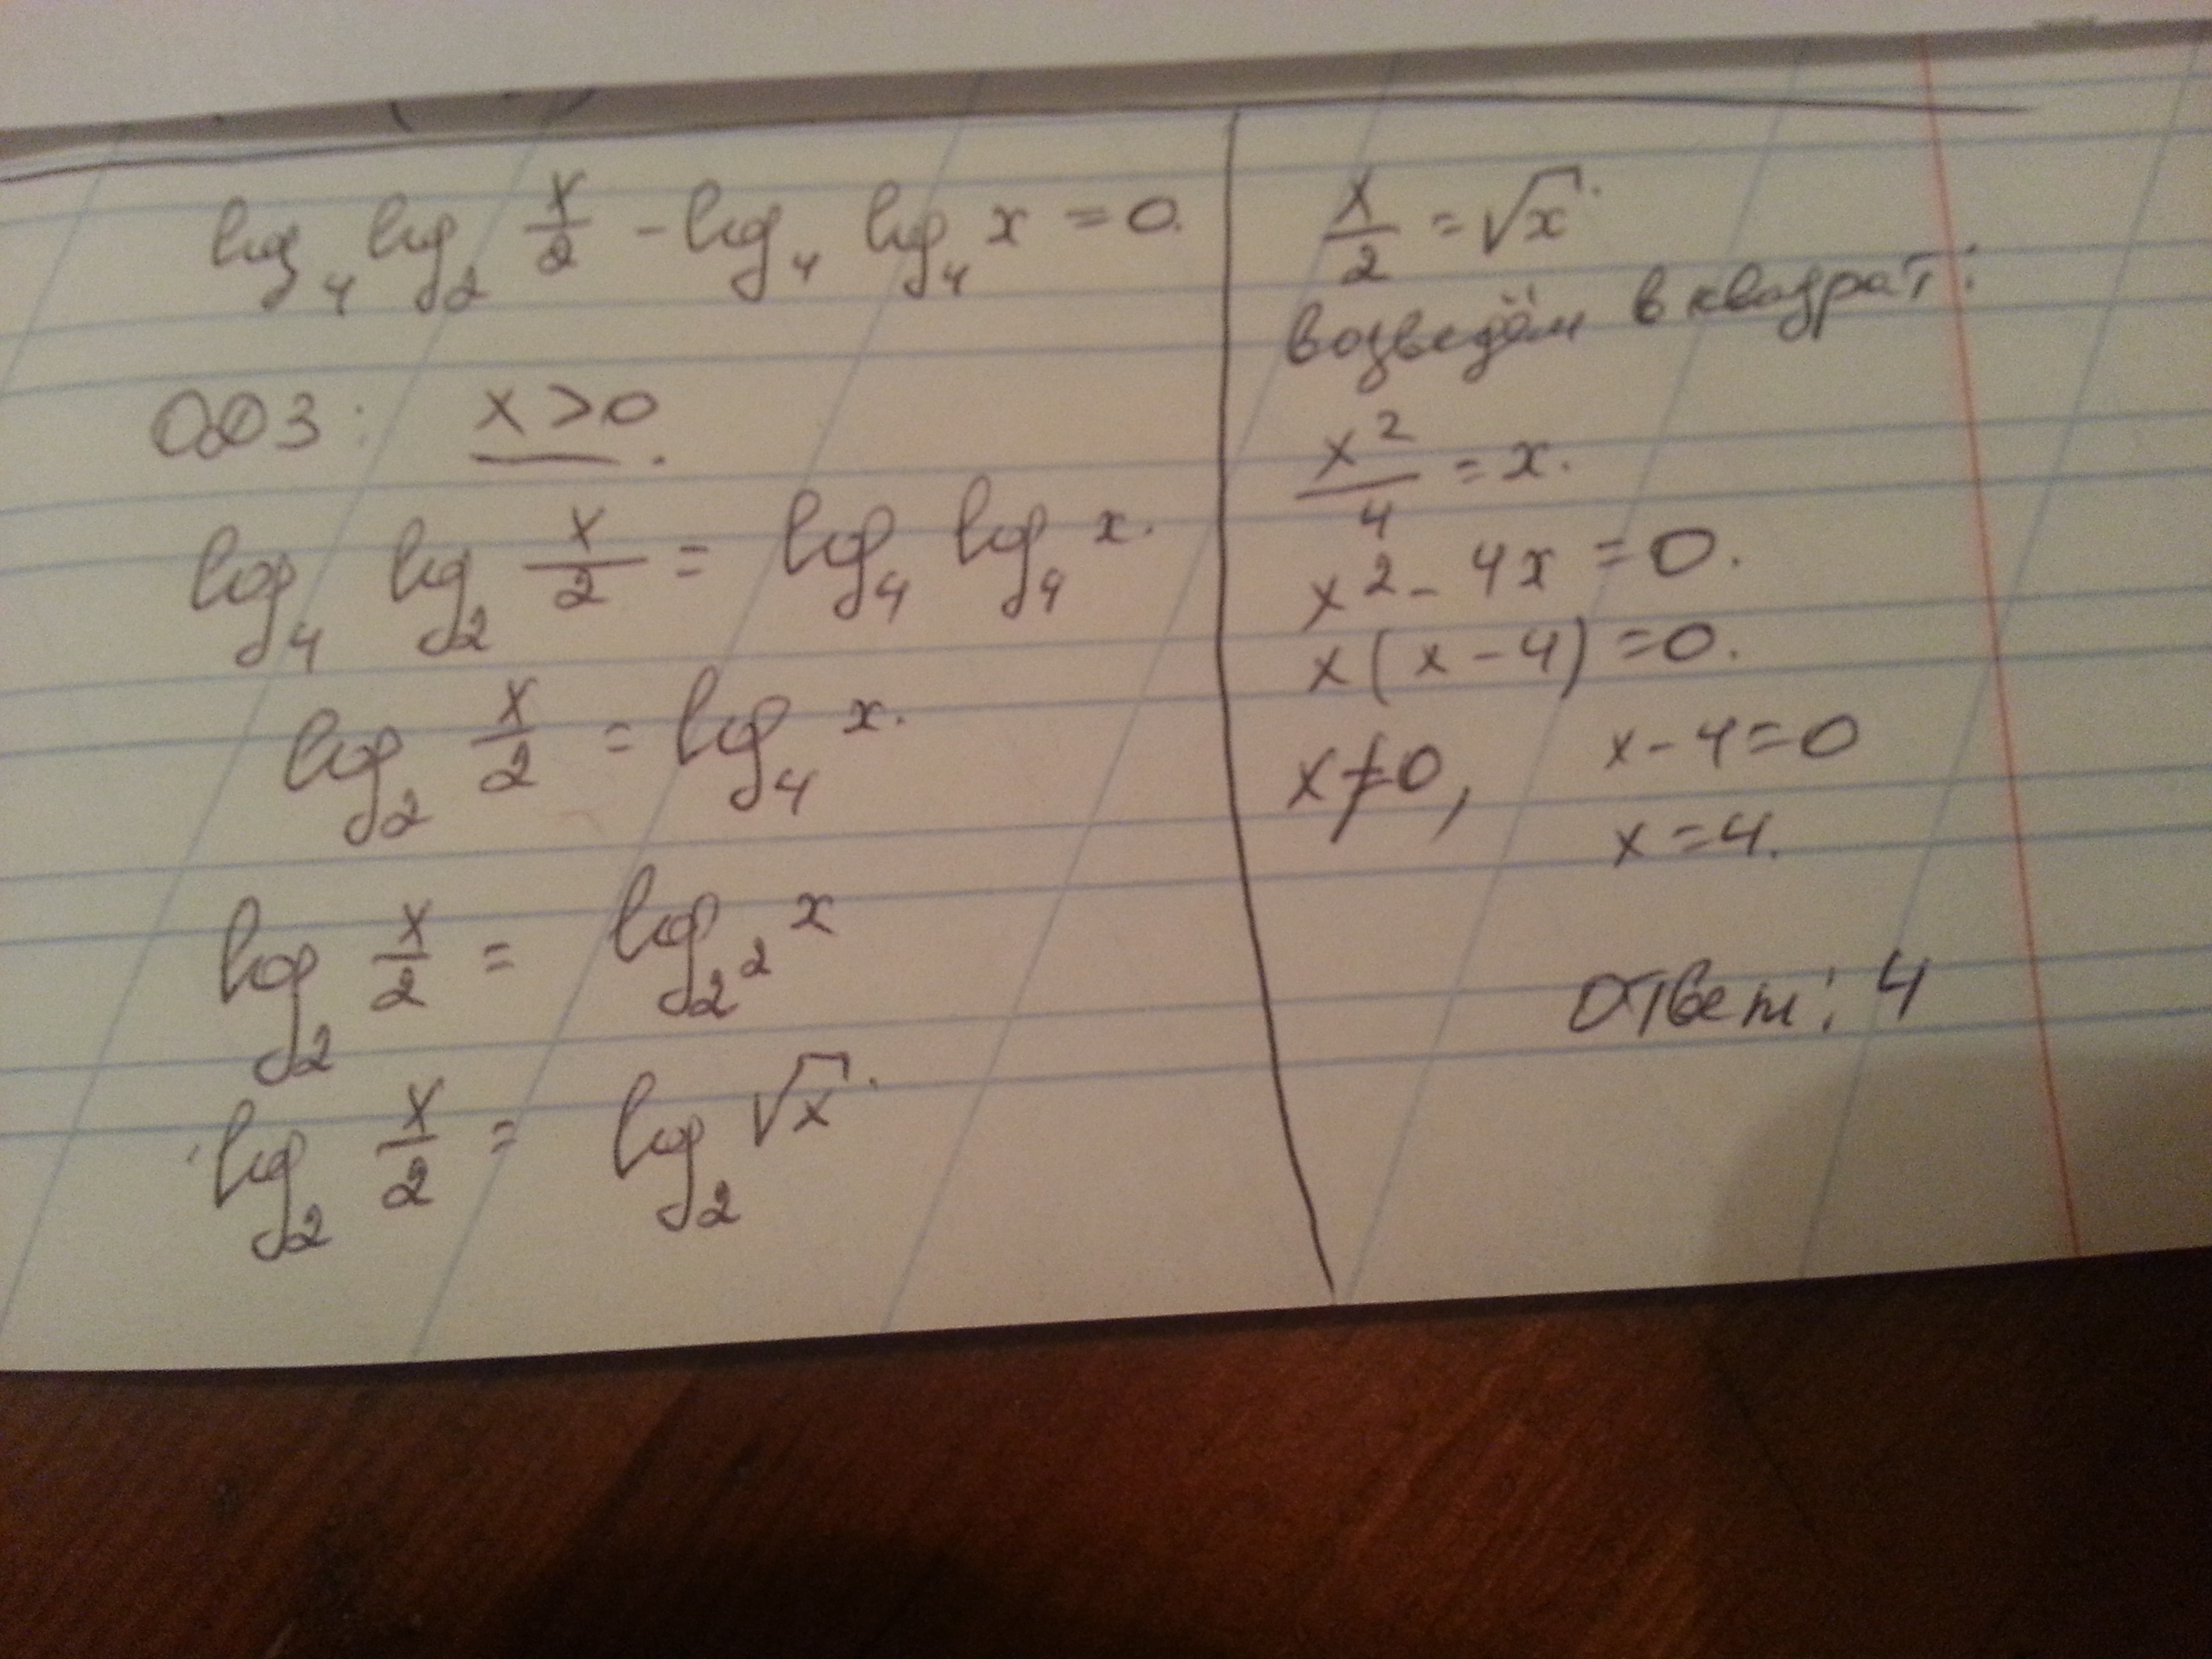 log₄ log₂ x/2 - log₄ log₄ x = 0.
ОДЗ: x > 0.
log₄ log₂ x/2 = log₄ log₄ x.
log₂ x/2 = log₄ x.
log₂ x/2 = log_{2²} x
log₂ x/2 = log₂ √x.
x/2 = √x.
возведём в квадрат:
x²/4 = x.
x² - 4x = 0.
x(x - 4) = 0.
x ≠ 0, x - 4 = 0
x = 4.
Ответ: 4